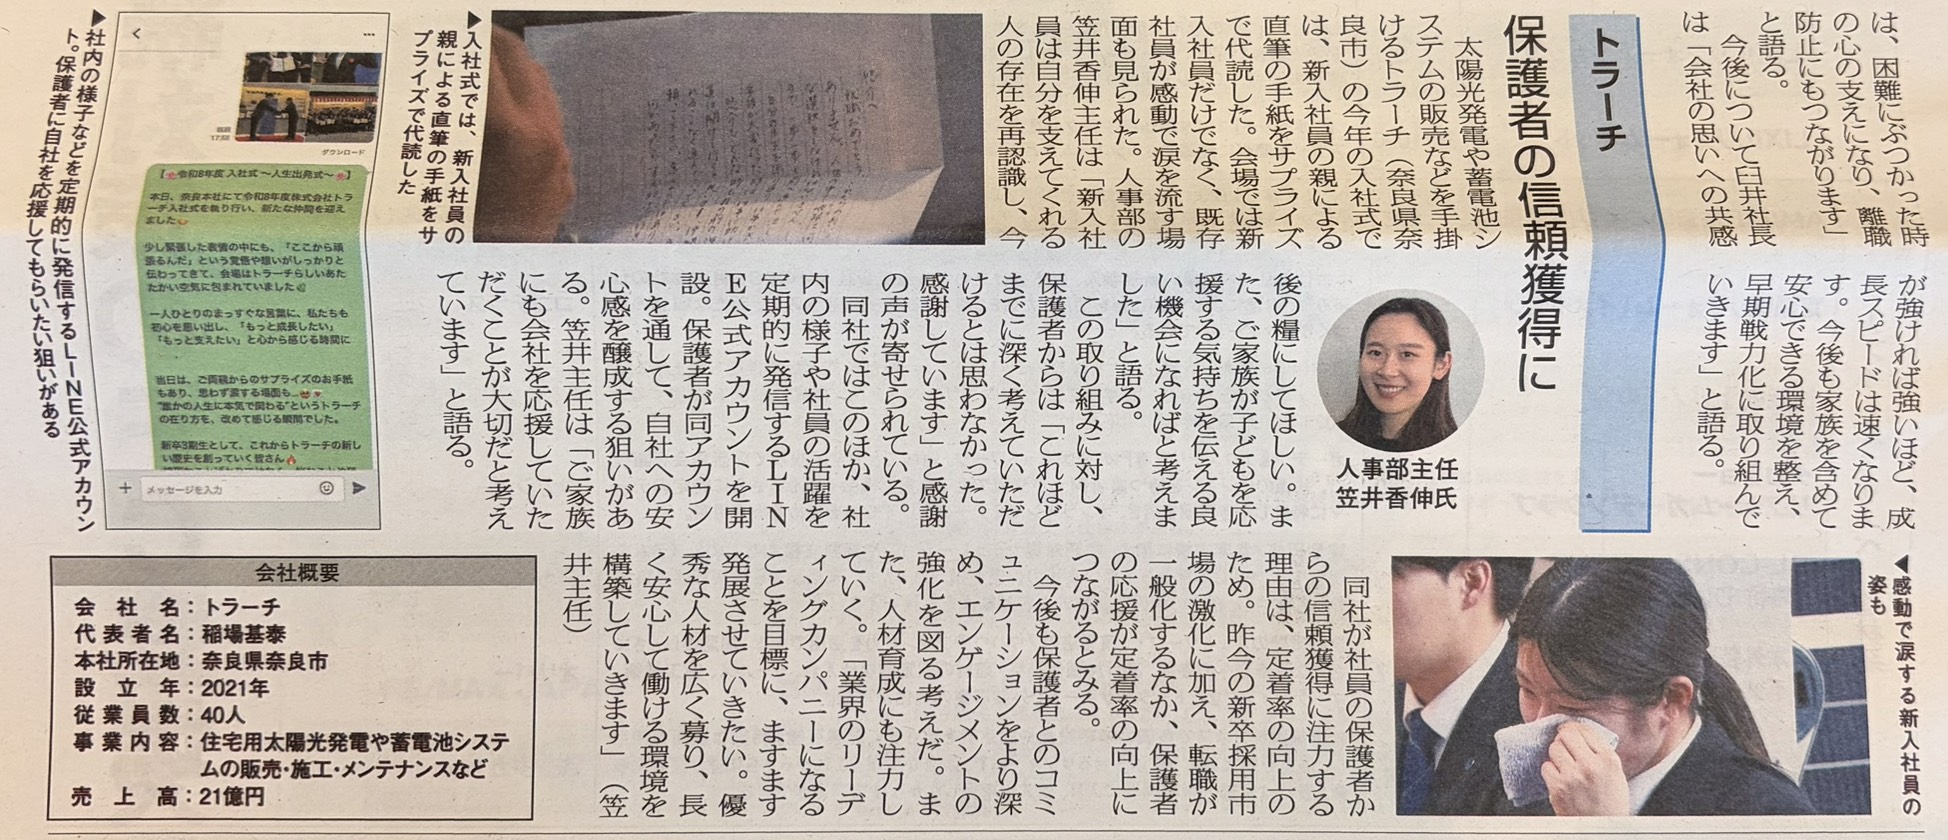 は、困難にぶつかった時
の心の支えになり、離職
防止にもつながります」
と語る。
今後について臼井社長
は「会社の思いへの共感
が強ければ強いほど、成
長スピードは速くなりま
す。今後も家族を含めて
安心できる環境を整え、
早期戦力化に取り組んで
いきます」と語る。
トラーチ
保護者の信頼獲得に
太陽光発電や蓄電池シ
ステムの販売などを手掛
けるトラーチ(奈良県奈
良市)の今年の入社式で
は、新入社員の親による
直筆の手紙をサプライズ
で代読した。会場では新
入社員だけでなく、既存
社員が感動で涙を流す場
面も見られた。人事部の
笠井香伸主任は「新入社
員は自分を支えてくれる
人の存在を再認識し、今
後の糧にしてほしい。ま
た、ご家族が子どもを応
援する気持ちを伝える良
い機会になればと考えま
した」と語る。
この取り組みに対し、
保護者からは「これほど
までに深く考えていただ
けるとは思わなかった。
感謝しています」と感謝
の声が寄せられている。
同社ではこのほか、社
内の様子や社員の活躍を
定期的に発信するLIN
E公式アカウントを開
設。保護者が同アカウン
トを通して、自社への安
心感を醸成する狙いがあ
る。笠井主任は「ご家族
にも会社を応援していた
だくことが大切だと考え
ています」と語る。
同社が社員の保護者か
らの信頼獲得に注力する
理由は、定着率の向上の
ため。昨今の新卒採用市
場の激化に加え、転職が
一般化するなか、保護者
の応援が定着率の向上に
つながるとみる。
今後も保護者とのコミ
ュニケーションをより深
め、エンゲージメントの
強化を図る考えだ。ま
た、人材育成にも注力し
ていく。「業界のリーデ
ィングカンパニーになる
ことを目標に、ますます
発展させていきたい。優
秀な人材を広く募り、長
く安心して働ける環境を
構築していきます」(笠
井主任)
人事部主任
笠井香伸氏
◀感動で涙する新入社員の
姿も
▶入社式では、新入社員の
親による直筆の手紙をサ
プライズで代読した
▶社内の様子などを定期的に発信するLINE公式アカウン
ト。保護者に自社を応援してもらいたい狙いがある
既読
17:58
ダウンロード
【🌸令和8年度 入社式 〜人生出発式〜🌸】
本日、奈良本社にて令和8年度株式会社トラ
ーチ入社式を執り行い、新たな仲間を迎え
ました
少し緊張した表情の中にも、「ここから頑
張るんだ」という覚悟や想いがしっかりと
伝わってきて、会場はトラーチらしいあた
たかい空気に包まれていました
一人ひとりのまっすぐな言葉に、私たちも
初心を思い出し、「もっと成長したい」
「もっと支えたい」と心から感じる時間に
当日は、ご両親からのサプライズのお手紙
もあり、思わず涙する場面も…
"誰かの人生に本気で関わる"というトラーチ
の在り方を、改めて感じる瞬間でした。
新卒3期生として、これからトラーチの新し
い歴史を創っていく皆さん🔥
メッセージを入力
会社概要
会社名:トラーチ
代表者名:稲場基泰
本社所在地:奈良県奈良市
設立年:2021年
従業員数:40人
事業内容:住宅用太陽光発電や蓄電池システ
ムの販売・施工・メンテナンスなど
売上高:21億円